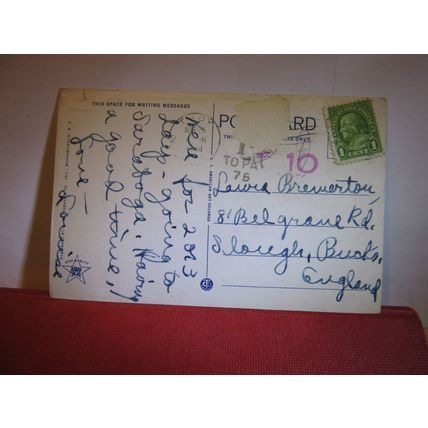 THIS SPACE FOR WRITING MESSAGES
Here for 2 or 3
days - going to
Saratoga. Having
a good time,
Love -
Louise
PO CARD
1
TO PAY
75
10
1 CENT 1
Laura Brewerton,
81 Belgrave Rd.
Slough, Bucks,
England